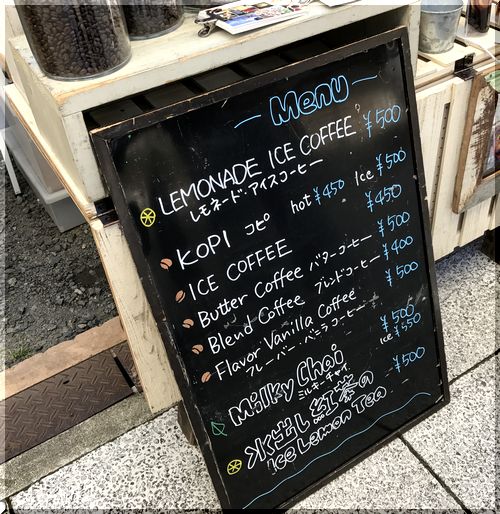 Menu
LEMONADE ICE COFFEE ¥500
レモネード・アイスコーヒー
KOPI コピ hot ¥450 Ice ¥500
ICE COFFEE ¥450
Butter Coffee バターコーヒー ¥500
Blend Coffee ブレンドコーヒー ¥400
Flavor Vanilla Coffee ¥500
フレーバー・バニラコーヒー
Milky Chai ¥500
ミルキーチャイ ice ¥550
水出し紅茶の ¥500
Ice Lemon Tea